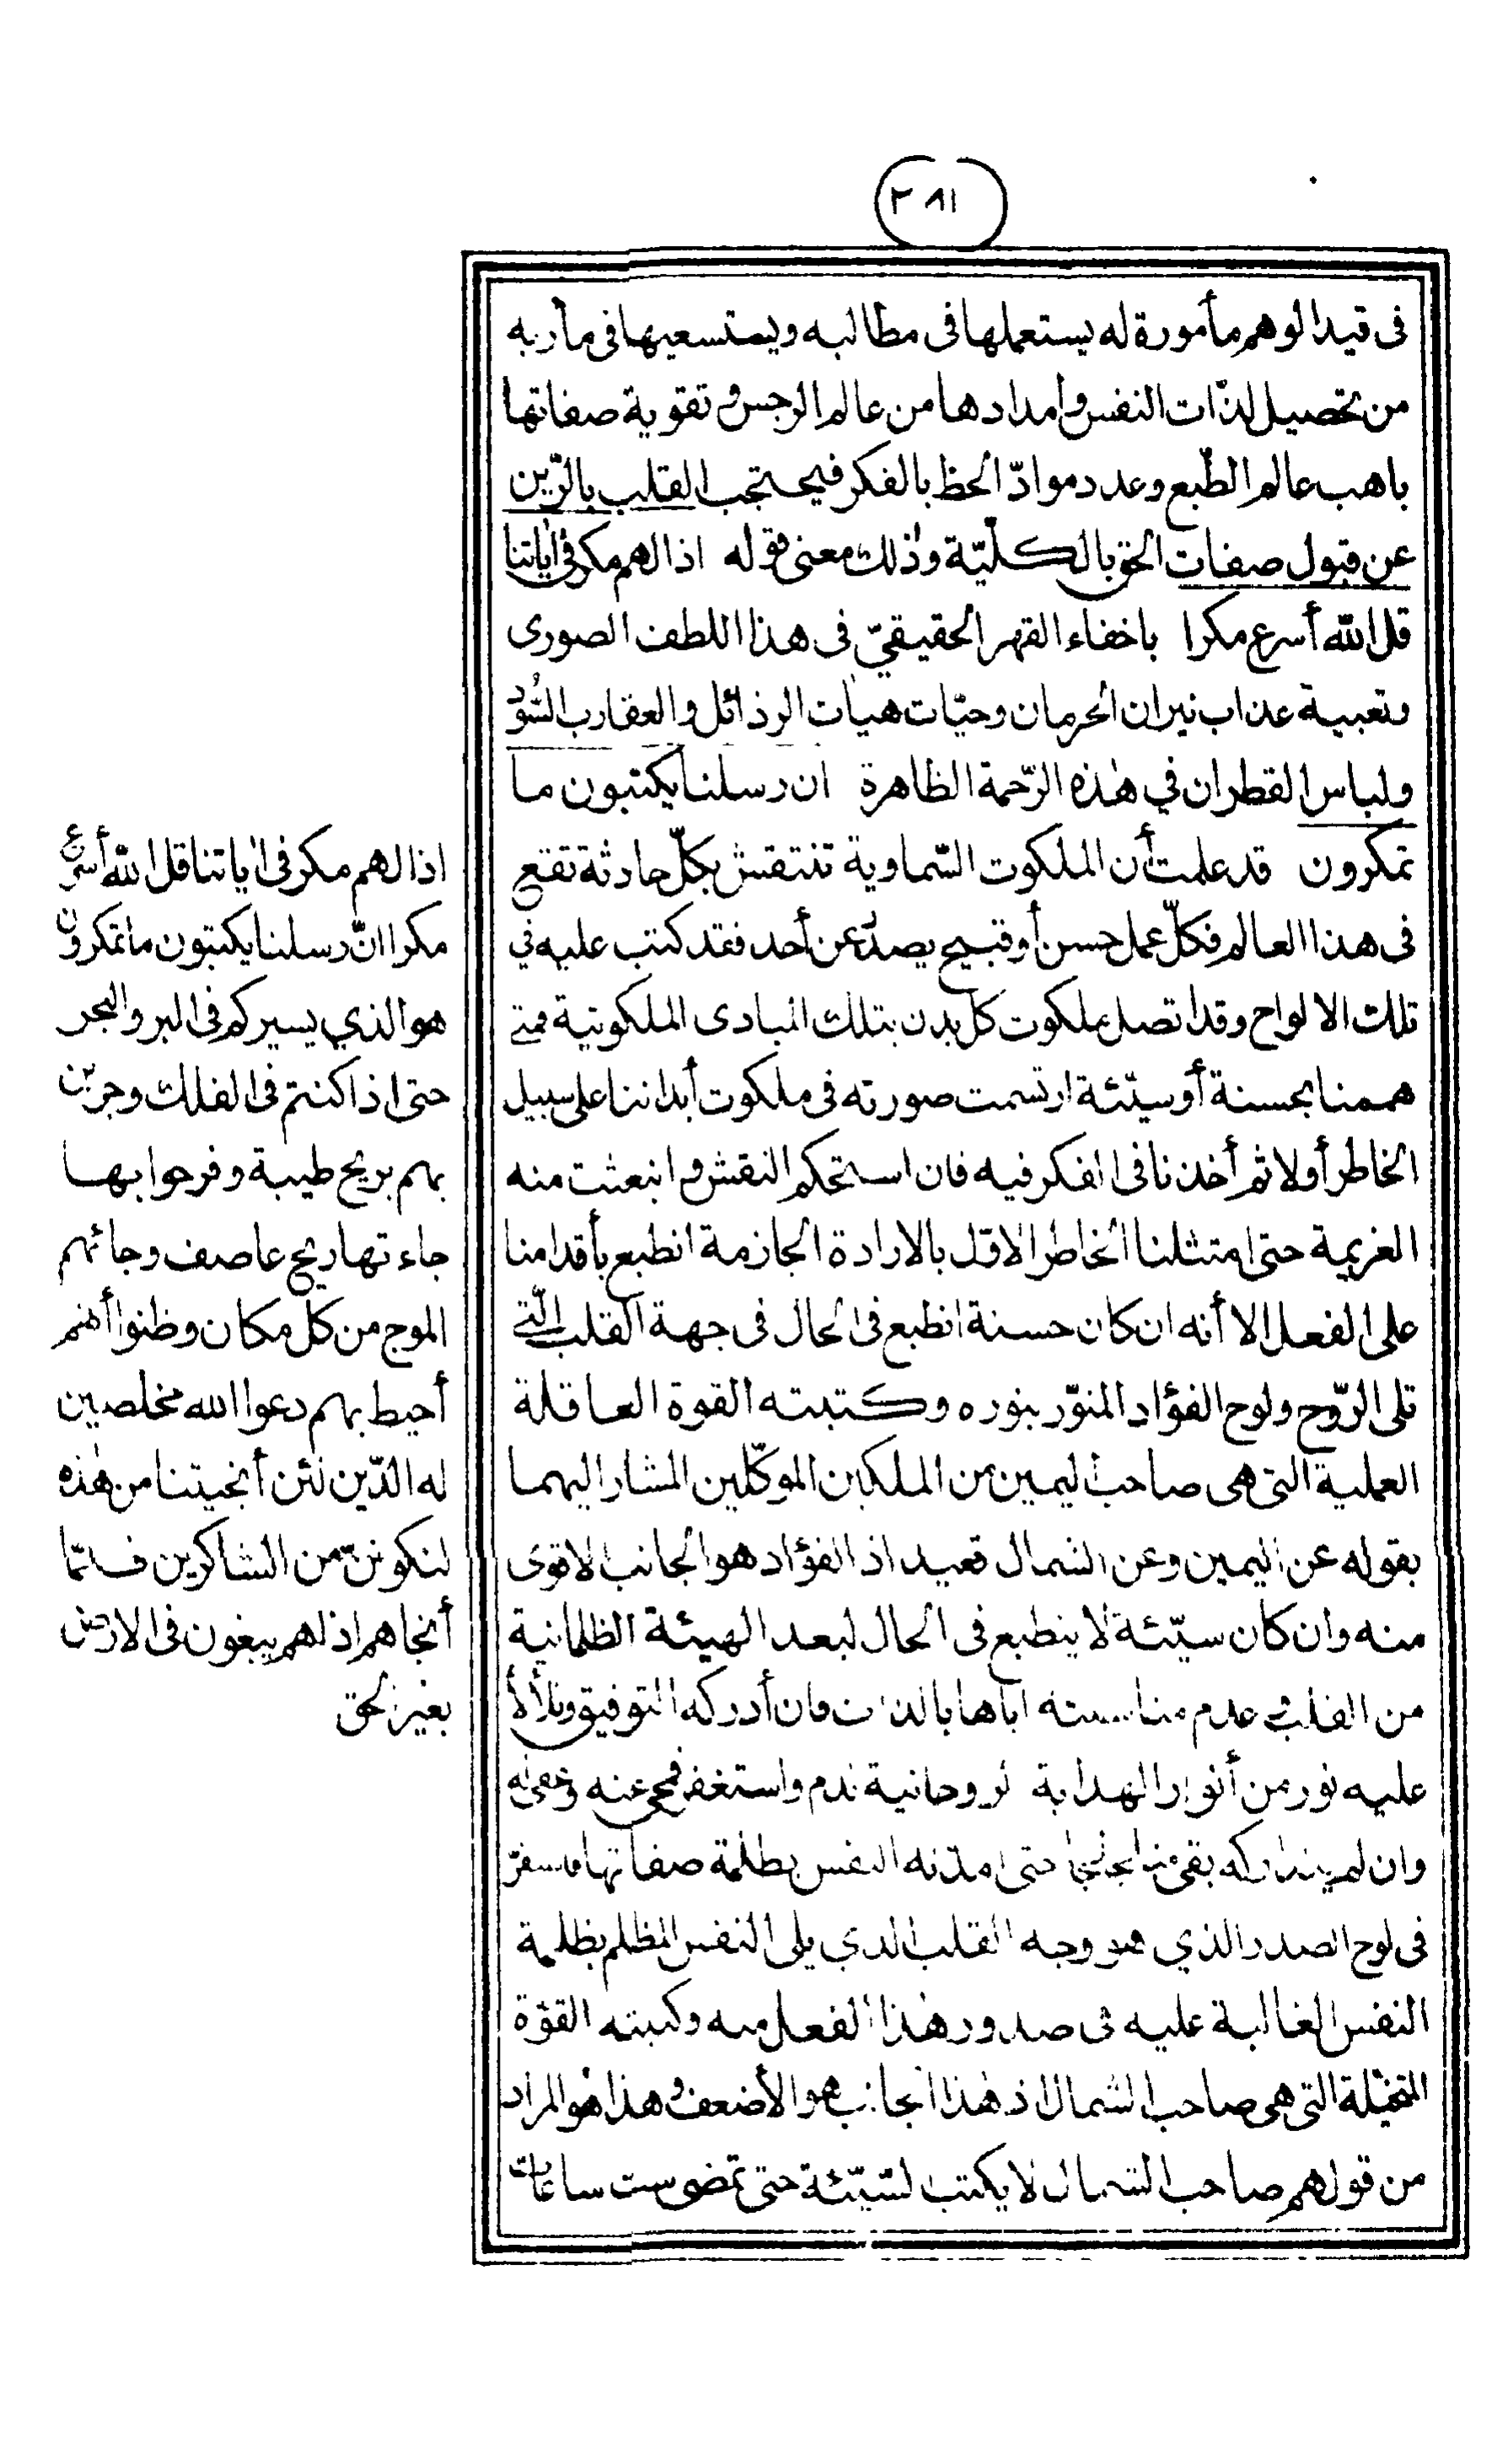 ٢٨١
فى قيد الوهم مأمورة له يستعملها فى مطالبه ويستسعيها فى مآربه
من تحصيل لذّات النفس وامدادها من عالم الرجس و تقوية صفاتها
باهب عالم الطّبع وعدد موادّ الحظ بالفكر فيحتجب القلب بالرّين
عن قبول صفات الحق بالكلّيّة وذلك معنى قوله اذا لهم مكر فى اٰياتنا
قل الله أسرع مكرا باخفاء القهر الحقيقىّ فى هذا اللطف الصورى
وتعبية عذاب نيران الحرمان وحيّات هيآت الرذائل والعقارب السُّود
ولباس القطران في هٰذه الرّحمة الظاهرة ان رسلنا يكتبون ما
تمكرون قد علمت أن الملكوت السّماوية تنتقش بكلّ حادثة تقع
فى هذا العالم فكلّ عمل حسن أو قبيح يصدر عن أحد فقد كتب عليه في
تلك الالواح وقد اتصل ملكوت كل بدن بتلك المبادى الملكوتية فمتى
هممنا بحسنة أو سيّئة ارتسمت صورته فى ملكوت أبداننا على سبيل
الخاطر أولا ثم أخذنا فى الفكر فيه فان استحكم النقش و انبعثت منه
العزيمة حتى امتثلنا الخاطر الاوّل بالارادة الجازمة انطبع بأقدامنا
على الفعل الا أنه ان كان حسنة انطبع فى الحال فى جهة القلب الّتى
تلى الرّوح ولوح الفؤاد المنوّر بنوره وكتبته القوة العاقلة
العملية التى هى صاحب اليمين من الملكين الموكّلين المشار اليهما
بقوله عن اليمين وعن الشمال قعيد اذ الفؤاد هو الجانب الاقوى
منه وان كان سيّئة لا ينطبع فى الحال لبعد الهيئة الظلمانية
من القلب و عدم مناسبته اياها بالذات فان أدركه التوفيق وتلألأ
عليه نور من أنوار الهداية الروحانية ندم واستغفر فمحى عنه وعفى له
وان لم يتداركه بقى حتى امدّته النفس بظلمة صفاتها فاستقرّ
فى لوح الصدر الذي هو وجه القلب الذى يلى النفس المظلم بظلمة
النفس الغالبة عليه فى صدور هٰذا الفعل منه وكتبته القوّة
المتخيّلة التى هى صاحب الشمال اذ هٰذا الجانب هو الأضعف و هذا هو المراد
من قولهم صاحب الشمال لا يكتب السّيّئة حتى تمضى ست ساعات
اذا لهم مكر فى اٰياتنا قل الله أسرع
مكرا انّ رسلنا يكتبون ما تمكرون
هو الذي يسيركم فى البر والبحر
حتى اذا كنتم فى الفلك وجرين
بهم بريح طيبة وفرحوا بها
جاءتها ريح عاصف وجائهم
الموج من كل مكان وظنوا أنهم
أحيط بهم دعوا الله مخلصين
له الدّين لئن أنجيتنا من هٰذه
لنكوننّ من الشاكرين فلمّا
أنجاهم اذا هم يبغون فى الارض
بغير الحق